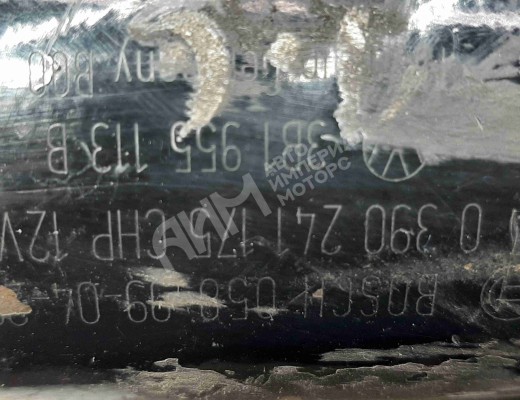 BOSCH 058 99 04-
0 390 241 175 CHP 12V
3B1 955 113 B
АИМ АВТО
ИМПЕРИЯ
МОТОРС